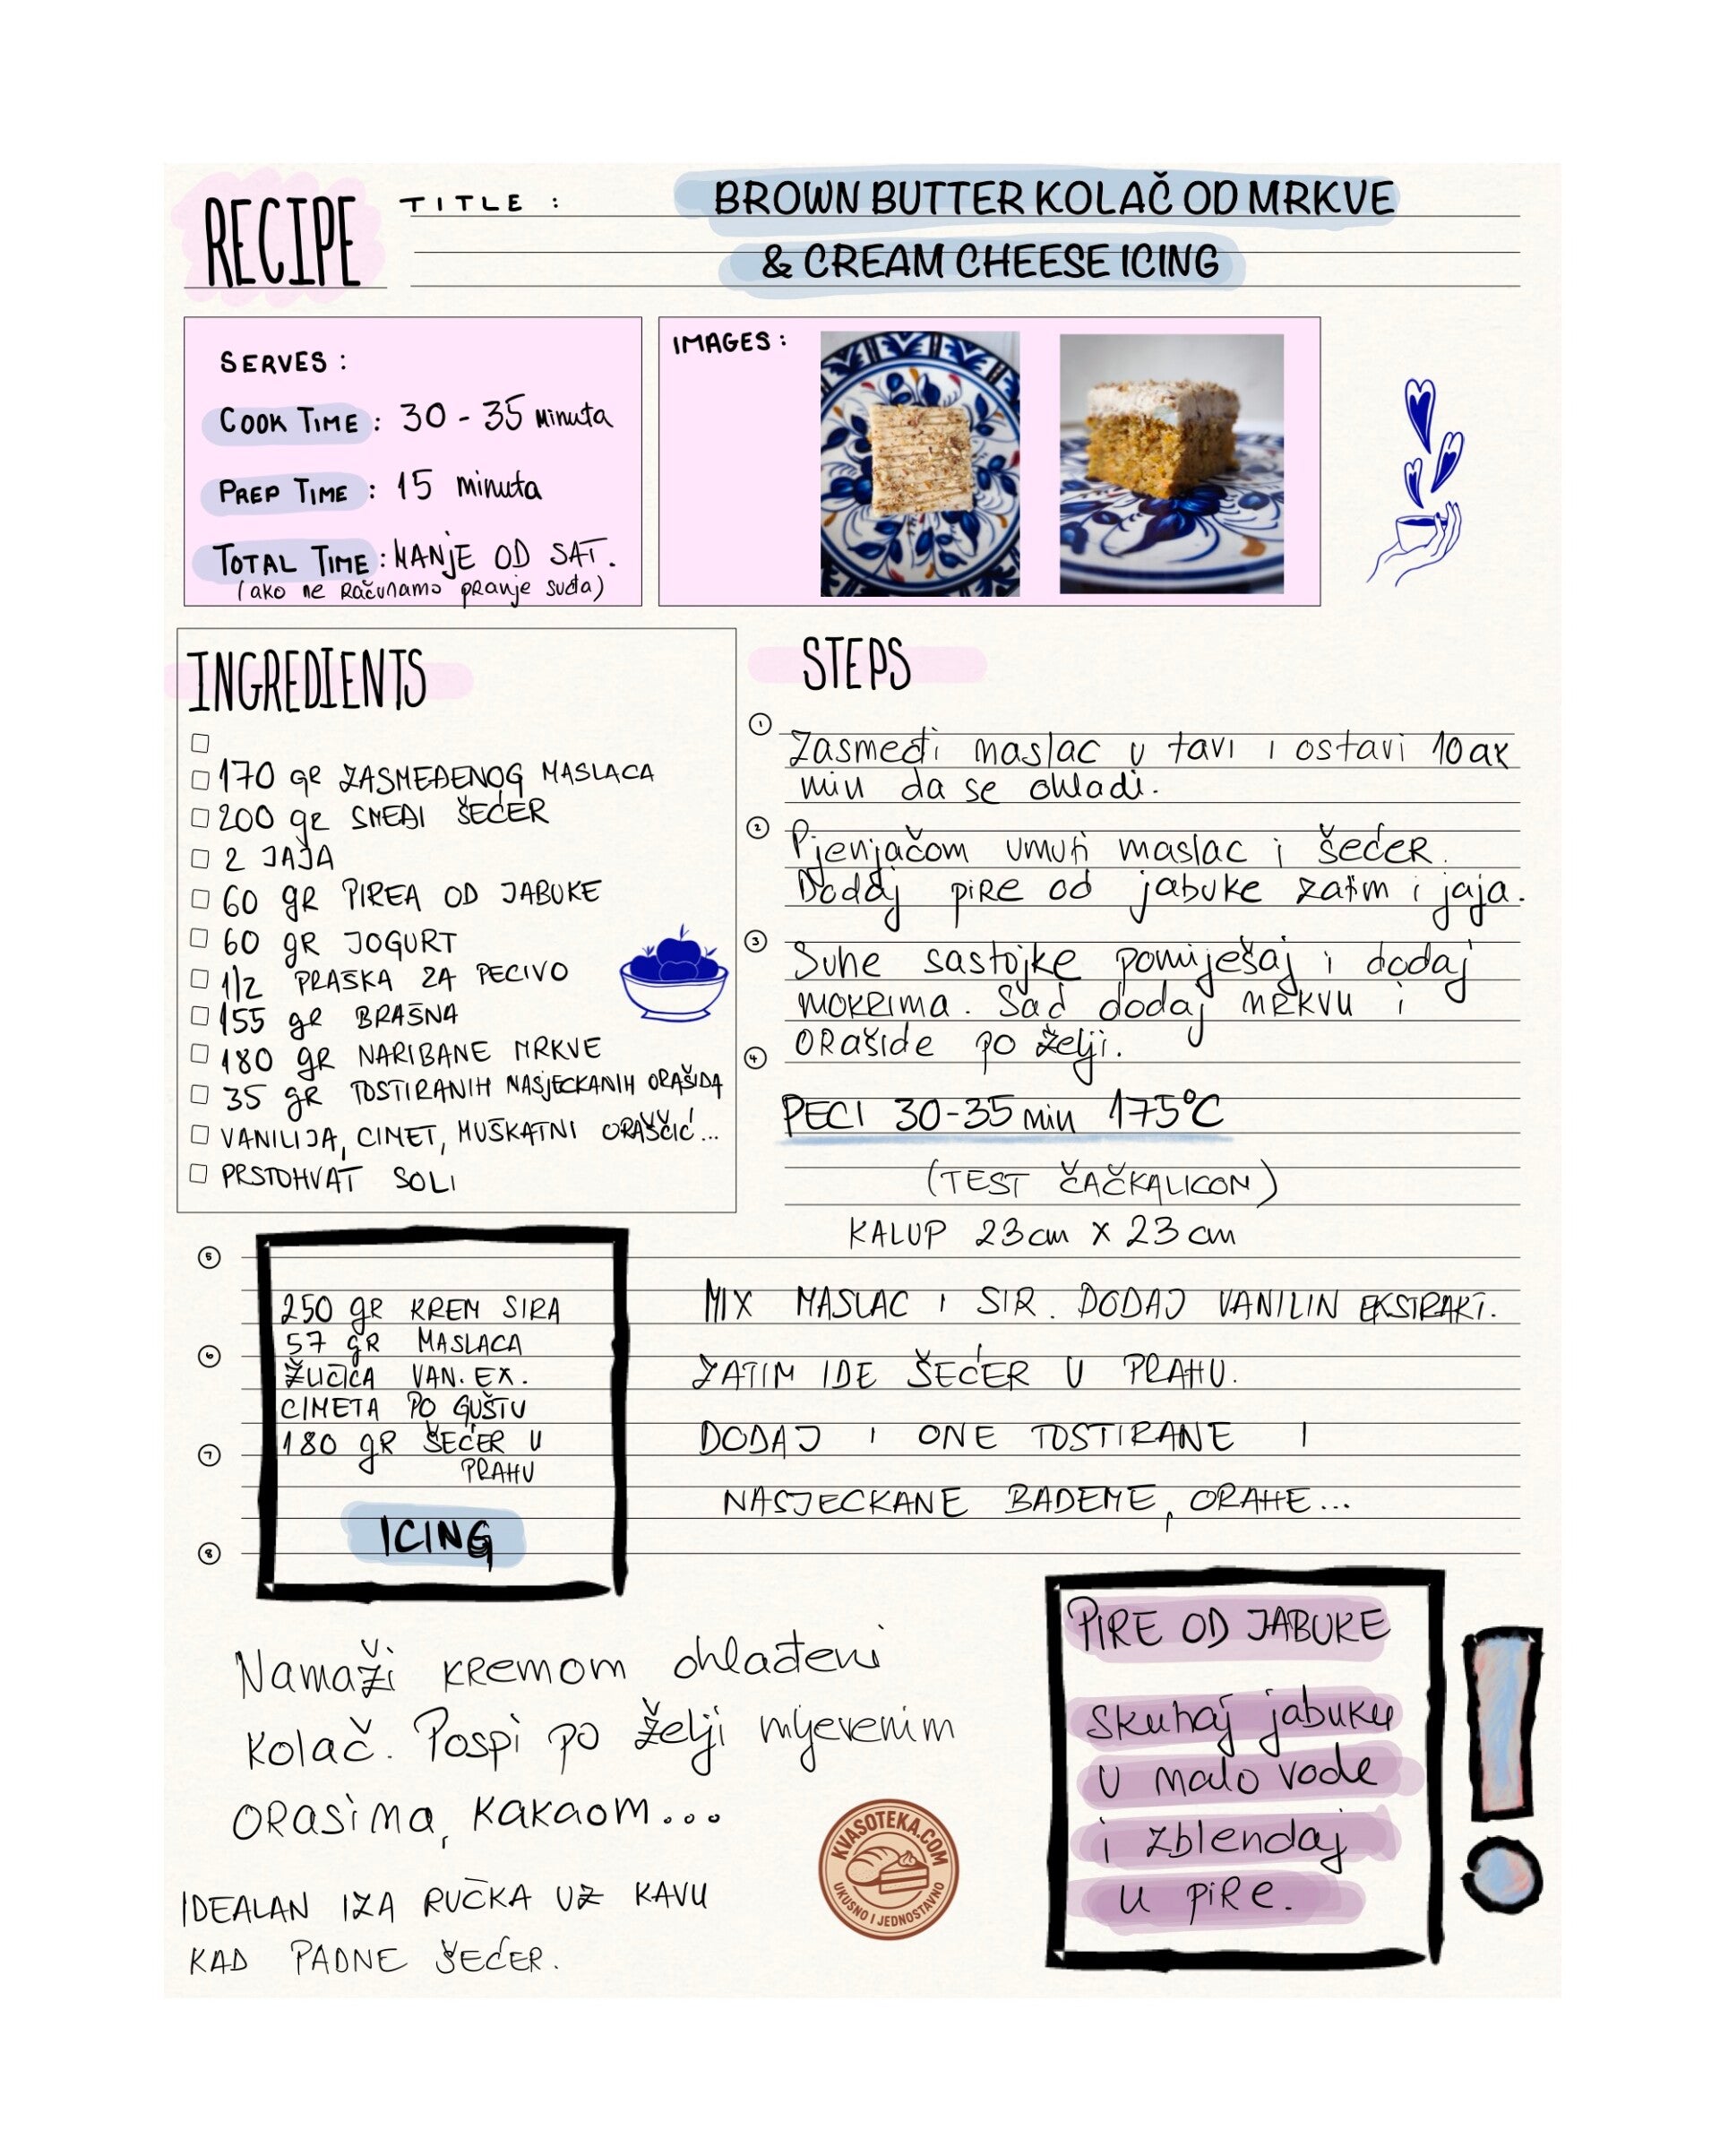 RECIPE
TITLE :
BROWN BUTTER KOLAČ OD MRKVE
& CREAM CHEESE ICING
SERVES :
COOK TIME : 30 - 35 Minuta
PREP TIME : 15 minuta
TOTAL TIME : MANJE OD SAT.
(ako ne računamo pranje suđa)
IMAGES :
INGREDIENTS
170 gR ZASMEĐENOG MASLACA
200 gR SMEĐI ŠEĆER
2 JAJA
60 gR PIREA OD JABUKE
60 gR JOGURT
1/2 PRAŠKA ZA PECIVO
155 gR BRAŠNA
180 gR NARIBANE MRKVE
35 gR TOSTIRANIH NASJECKANIH ORAŠIDA
VANILIJA, CIMET, MUŠKATNI ORAŠČIĆ...
PRSTOHVAT SOLI
STEPS
1 Zasmeđi maslac u tavi i ostavi 10ak
min da se ohladi.
2 Pjenjačom umuti maslac i šećer.
Dodaj pire od jabuke zatim i jaja.
3 Suhe sastojke pomiješaj i dodaj
mokrima. Sad dodaj mrkvu i
4 orašide po želji.
PECI 30-35 min 175°C
(TEST ČAČKALICOM)
KALUP 23 cm X 23 cm
5
250 gR KREM SIRA
57 gR MASLACA
6
ŽLIČICA VAN. EX.
CIMETA PO GUŠTU
7
180 gR ŠEĆER U
PRAHU
ICING
8
MIX MASLAC I SIR. DODAJ VANILIN EKSTRAKT.
ZATIM IDE ŠEĆER U PRAHU.
DODAJ I ONE TOSTIRANE I
NASJECKANE BADEME, ORAHE...
Namaži kremom ohlađeni
kolač. Pospi po želji mljevenim
orasima, kakaom...
IDEALAN IZA RUČKA UZ KAVU
KAD PADNE ŠEĆER.
KVASOTEKA.COM
UKUSNO I JEDNOSTAVNO
PIRE OD JABUKE
Skuhaj jabuku
u malo vode
i zblendaj
u pire.
!